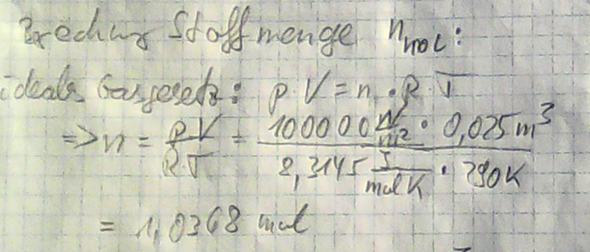 Berechnung Stoffmenge n_mol:
ideales Gasgesetz: p V = n · R · T
=> n = pV / RT = 100000 N/m² · 0,025 m³ / 8,3145 J/mol K · 290 K
= 1,0368 mol